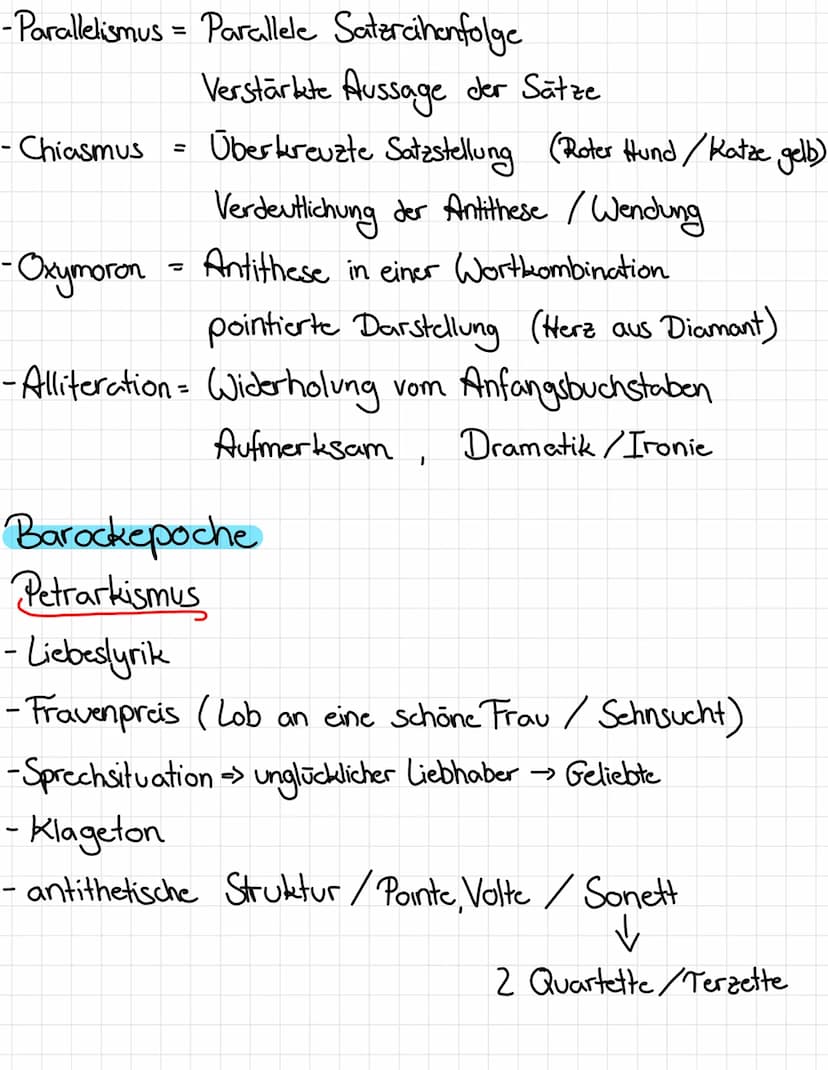 - Parallelismus = Parallele Satzreihenfolge
Verstärkte Aussage der Sätze
- Chiasmus = Überkreuzte Satzstellung (Roter Hund / Katze gelb)
Verdeutlichung der Antithese / Wendung
- Oxymoron = Antithese in einer Wortkombination
pointierte Darstellung (Herz aus Diamant)
- Alliteration = Widerholung vom Anfangsbuchstaben
Aufmerksam , Dramatik / Ironie
Barockepoche
Petrarkismus
- Liebeslyrik
- Frauenpreis ( Lob an eine schöne Frau / Sehnsucht)
- Sprechsituation => unglücklicher Liebhaber → Geliebte
- Klageton
- antithetische Struktur / Pointe, Volte / Sonett
↓
2 Quartette / Terzette